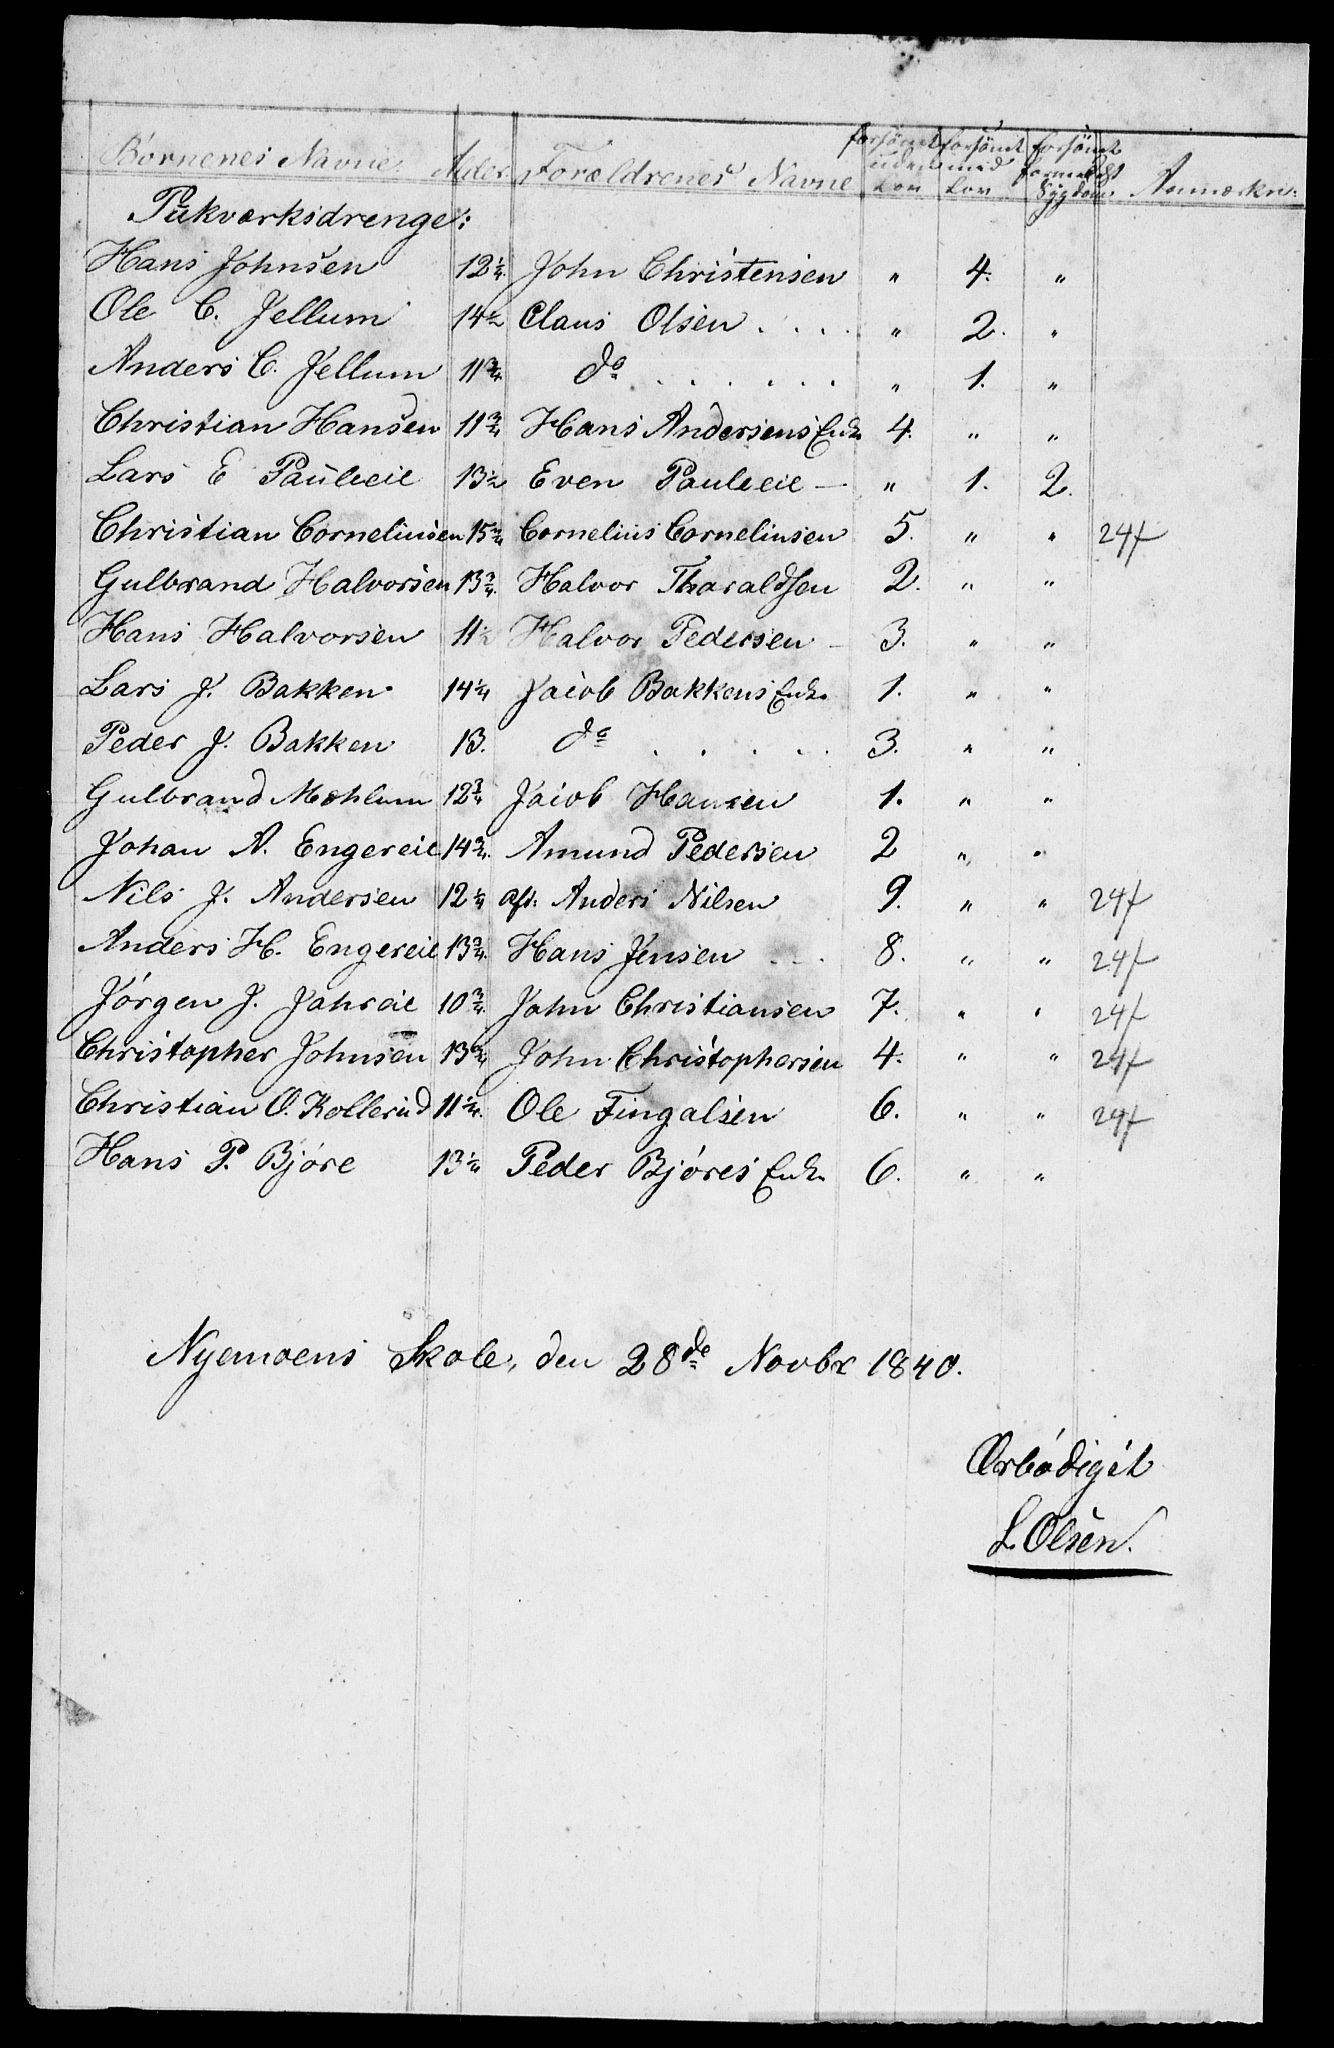 Børnenes Navne Alder. Forældrenes Navne forsömt uden Lov forsömt med Lov forsömt formedelst Sygdom. Anmærkn:
Pukværksdrenge:
Hans Johnsen 12 1/4. John Christensen " 4. "
Ole C. Jellum 14 1/2 Claus Olsen . . . . " 2. "
Anders C. Jellum 11 3/4 do . . . . . . " 1. "
Christian Hansen 11 3/4 Hans Andersens Enke 4. " "
Lars E Pauleeie 13 1/2 Even Pauleeie — " 1. 2.
Christian Corneliusen 15 3/4 Cornelius Corneliusen 5. " " 24
Gulbrand Halvorsen 13 3/4. Halvor Tharaldsen 2. " "
Hans Halvorsen 11 1/2 Halvor Pedersen – 3. " "
Lars J. Bakken 14 1/4 Jacob Bakkens Enke 1. " "
Peder J. Bakken 13. do . . . . . 3. " "
Gulbrand Mæhlum 12 3/4 Jacob Hansen 1. " "
Johan A. Engereie 14 3/4. Amund Pedersen 2 " "
Nils J. Andersen 12 1/4 afd. Anders Nilsen 9. " " 24
Anders H. Engereie 13 3/4. Hans Jensen . . . 8. " " 24
Jørgen J. Jahreie 10 3/4. John Christiansen 7. " " 24
Christopher Johnsen 13 3/4 John Christophersen 4. " " 24
Christian O. Kollerud 11 1/4. Ole Fingalsen 6. " " 24
Hans P. Bjøre 13 1/4 Peder Bjøres Enke 6. " "
Nyemoens Skole, den 28de Novbr 1840.
Ærbødigst
L. Olsen.